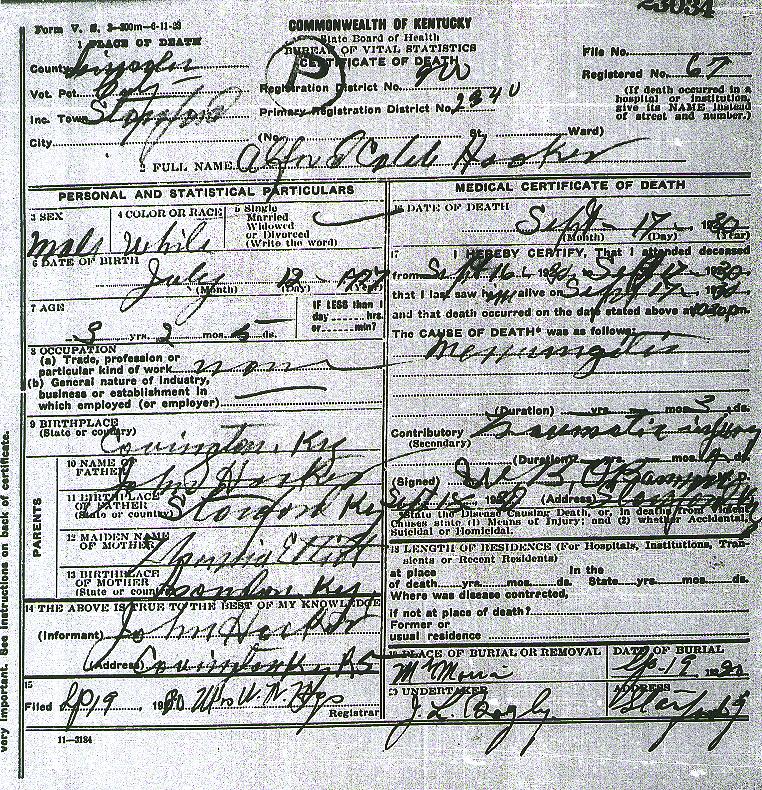 23034
Form V. S. 3-300m-6-11-29
COMMONWEALTH OF KENTUCKY
State Board of Health
BUREAU OF VITAL STATISTICS
CERTIFICATE OF DEATH
1 PLACE OF DEATH
County Lincoln
Vot. Pct.
Inc. Town Stanford
City
P
File No.
Registered No. 67
Registration District No.
Primary Registration District No. 2340
(If death occurred in a hospital or institution, give its NAME instead of street and number.)
(No. St., Ward)
2 FULL NAME Caleb Hooker
PERSONAL AND STATISTICAL PARTICULARS
3 SEX
Male
4 COLOR OR RACE
White
5 Single
Married
Widowed
or Divorced
(Write the word)
6 DATE OF BIRTH
July 12 1927
(Month) (Day) (Year)
7 AGE
3 yrs. 2 mos. 5 ds.
IF LESS than 1
day hrs.
or min?
8 OCCUPATION
(a) Trade, profession or
particular kind of work none
(b) General nature of industry,
business or establishment in
which employed (or employer)
9 BIRTHPLACE
(State or country)
Covington, Ky
PARENTS
10 NAME OF
FATHER John Hooker
11 BIRTHPLACE
OF FATHER
(State or country) Stanford Ky
12 MAIDEN NAME
OF MOTHER Elliott
13 BIRTHPLACE
OF MOTHER
(State or country) London Ky.
14 THE ABOVE IS TRUE TO THE BEST OF MY KNOWLEDGE
(Informant) John Hooker
(Address) Covington Ky R5
15
Filed Sep 19 1930 Mrs
Registrar
11-3184
MEDICAL CERTIFICATE OF DEATH
16 DATE OF DEATH
Sept 17 1930
(Month) (Day) (Year)
17 I HEREBY CERTIFY, That I attended deceased
from Sept 16 1930, Sept 17 1930
that I last saw him alive on Sept 17 1930
and that death occurred on the date stated above at 10:30 pm.
The CAUSE OF DEATH* was as follows:
Menningitis
(Duration) yrs. mos. 3 ds.
Contributory Traumatic injury
(Secondary)
(Duration) yrs. mos. ds.
(Signed) W. B. O'Bannon
Sept 18 (Address) Stanford Ky
*State the Disease Causing Death, or, in deaths from Violent Causes state (1) Means of Injury; and (2) whether Accidental, Suicidal or Homicidal.
18 LENGTH OF RESIDENCE (For Hospitals, Institutions, Transients or Recent Residents)
at place In the
of death yrs. mos. ds. State yrs. mos. ds.
Where was disease contracted,
if not at place of death?
Former or
usual residence
19 PLACE OF BURIAL OR REMOVAL
Mt Moria
DATE OF BURIAL
Sep 19 1930
20 UNDERTAKER
J. L. Beazly
ADDRESS
Stanford Ky
very important. See instructions on back of certificate.